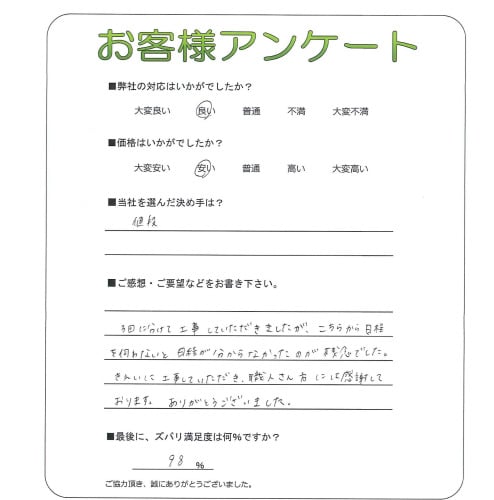 お客様アンケート
■弊社の対応はいかがでしたか？
大変良い 良い 普通 不満 大変不満
■価格はいかがでしたか？
大変安い 安い 普通 高い 大変高い
■当社を選んだ決め手は？
値段
■ご感想・ご要望などをお書き下さい。
3回に分けて工事していただきましたが、こちらから日程
を伺わないと日程が分からなかったのが残念でした。
きれいに工事していただき、職人さん方には感謝して
おります。ありがとうございました。
■最後に、ズバリ満足度は何％ですか？
98 ％
ご協力頂き、誠にありがとうございました。